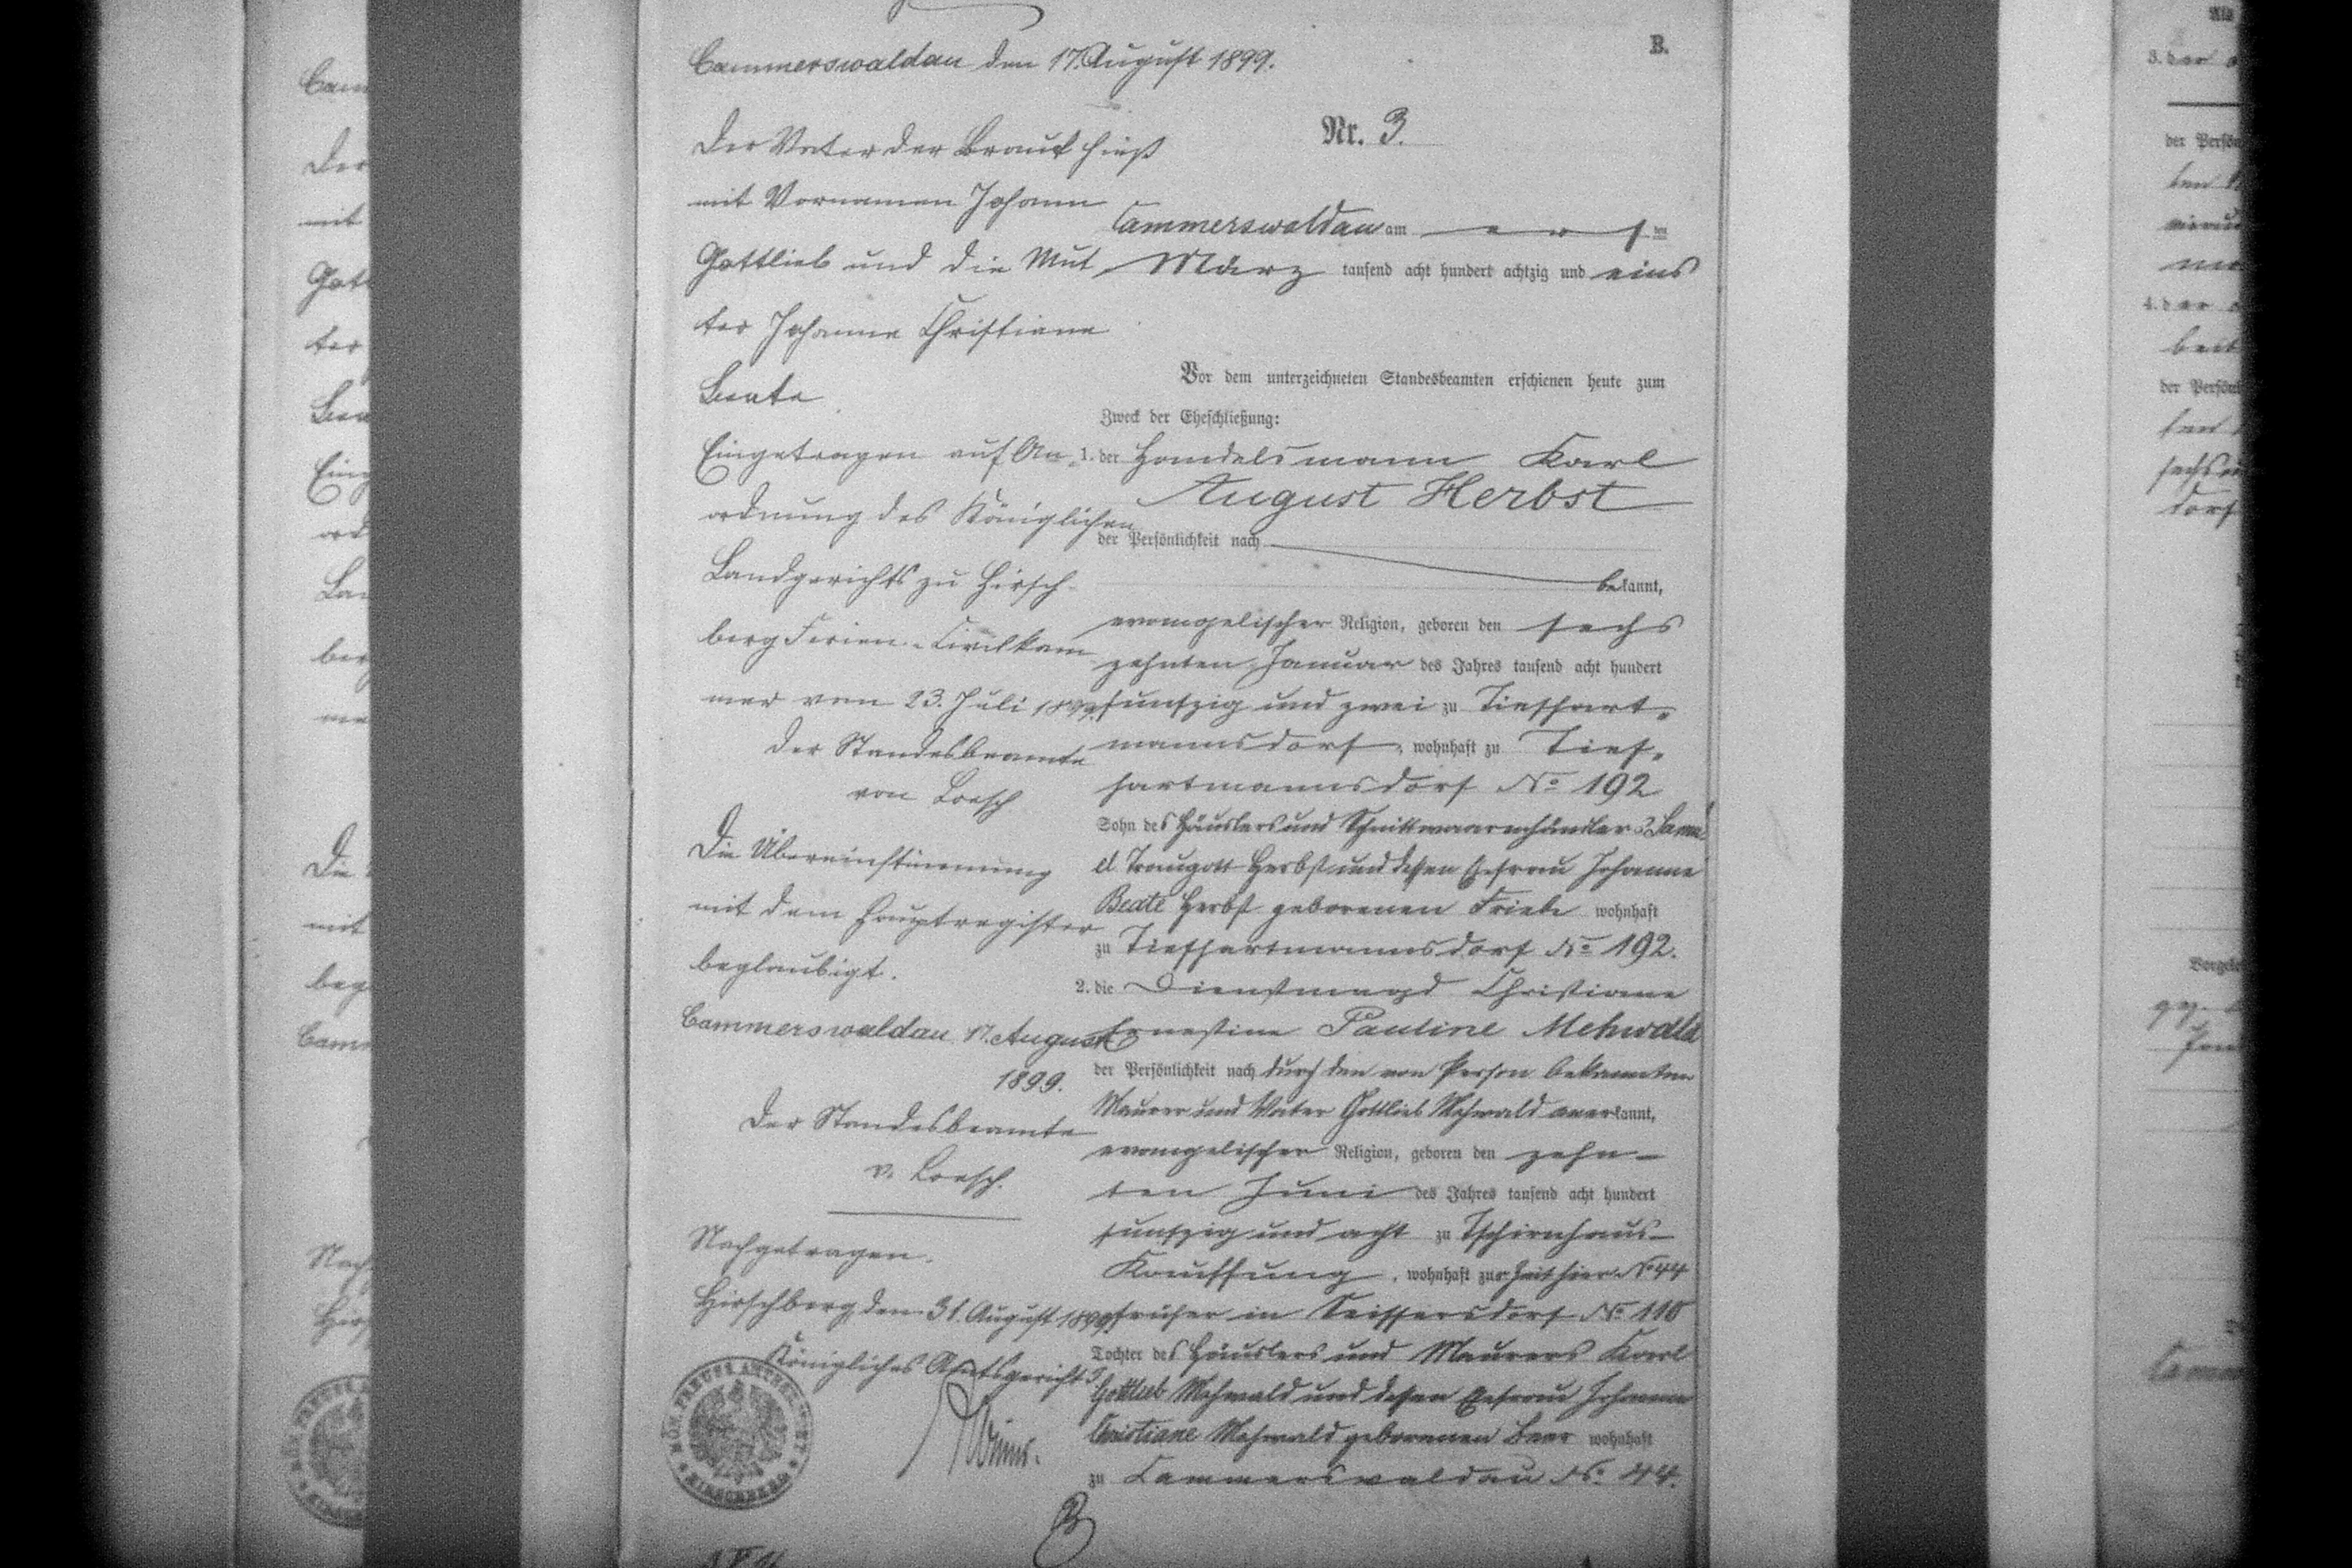 B.
Cammerswaldau den 17. August 1899.
Der Vater der Braut hieß
mit Vornamen Johann
Gottlieb und die Mut
ter Johanne Christiane
Beate
Eingetragen auf An
ordnung des Königlichen
Landgerichts zu Hirsch-
berg Ferien-Civilkam
mer vom 23. Juli 1899.
Der Standesbeamte
von Loesch
Die Übereinstimmung
mit dem Hauptregister
beglaubigt.
Cammerswaldau 17. August
1899.
Der Standesbeamte
v. Loesch.
Nachgetragen.
Hirschberg, den 31. August 1899.
Königliches Amtsgericht
KÖN. PREUSS. AMTSGERICHT
HIRSCHBERG
Nr. 3.
Cammerswaldau am ten
März tausend acht hundert achtzig und eins
Vor dem unterzeichneten Standesbeamten erschienen heute zum
Zweck der Eheschließung:
1. der Handelsmann Karl
August Herbst
der Persönlichkeit nach
bekannt,
evangelischer Religion, geboren den sechs
zehnten Januar des Jahres tausend acht hundert
funfzig und zwei zu Tiefhart-
mannsdorf, wohnhaft zu Tief-
hartmannsdorf No 192
Sohn des Häuslers und Schnittwaarenhändlers Samu
el Traugott Herbst und dessen Ehefrau Johanne
Beate Herbst geborenen Friebe wohnhaft
zu Tiefhartmannsdorf No 192.
2. die Dienstmagd Christiane
Ernestine Pauline Mehwald
der Persönlichkeit nach durch den von Person bekannten
Maurer und Vater Gottlieb Mehwald anerkannt,
evangelischer Religion, geboren den zehn-
ten Juni des Jahres tausend acht hundert
funfzig und acht zu Tschirnhaus-
Kauffung, wohnhaft zur Zeit hier No 44
früher in Seiffersdorf No 110
Tochter des Häuslers und Maurers Karl
Gottlieb Mehwald und dessen Ehefrau Johanne
Christiane Mehwald geborenen Beer wohnhaft
zu Cammerswaldau No. 44.